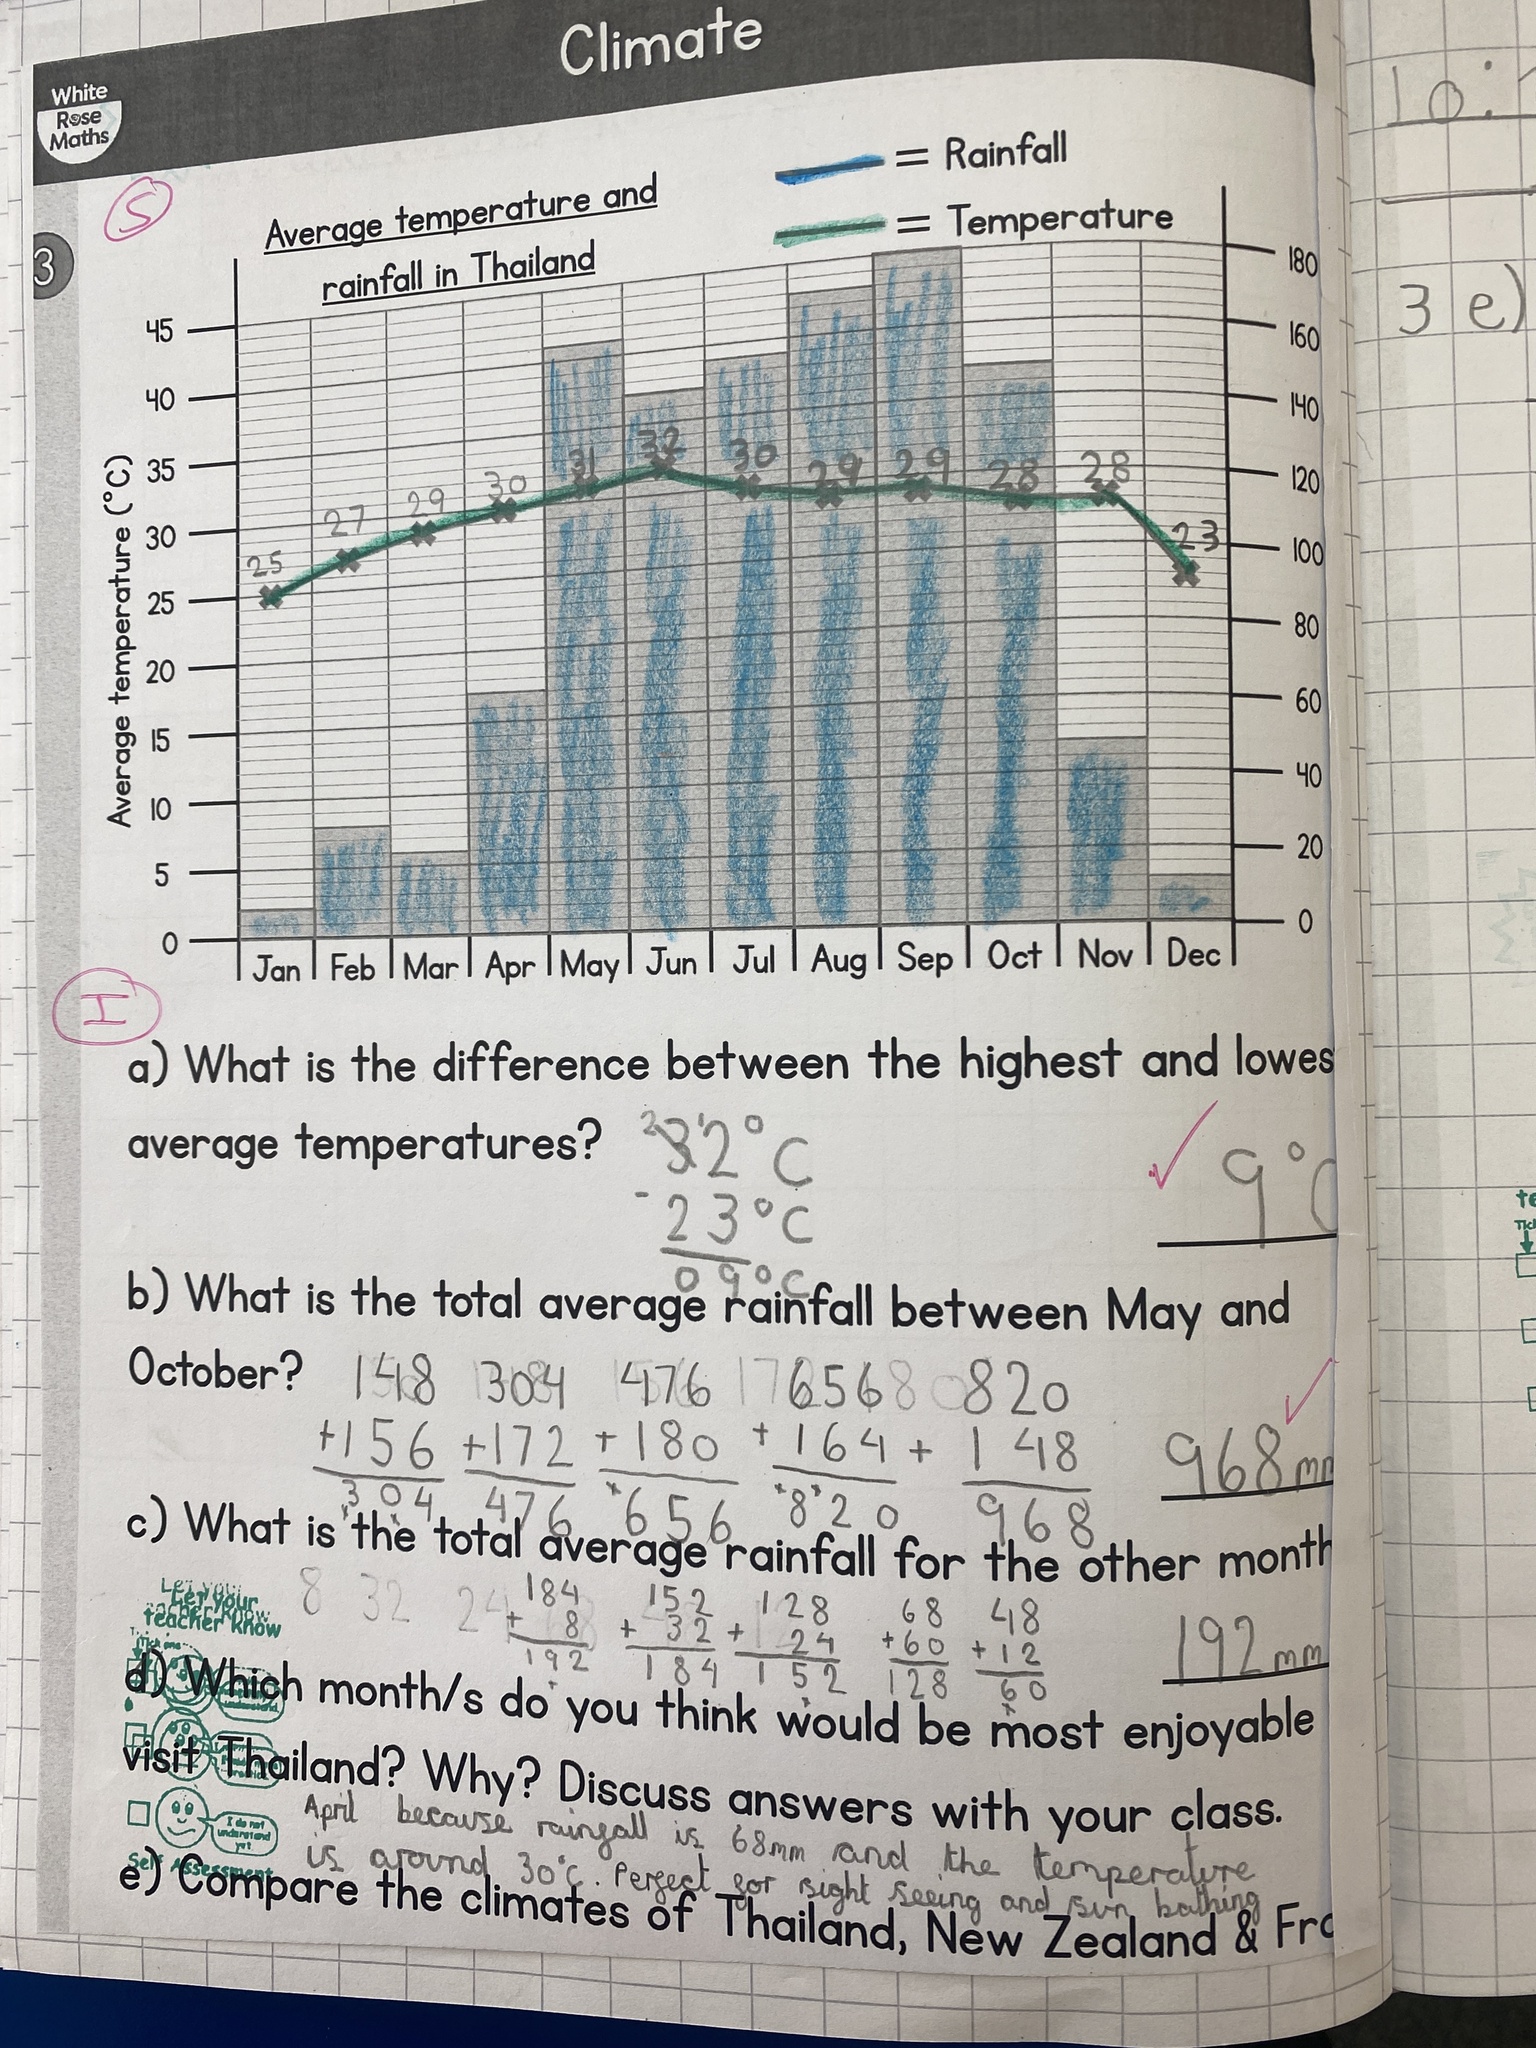 Climate
White
Rose
Maths
10:
S
= Rainfall
= Temperature
3
Average temperature and
rainfall in Thailand
3 e)
Average temperature (°C)
45
40
35
30
25
20
15
10
5
0
180
160
140
120
100
80
60
40
20
0
25 27 29 30 31 32 30 29 29 28 28 23
Jan Feb Mar Apr May Jun Jul Aug Sep Oct Nov Dec
I
a) What is the difference between the highest and lowes
average temperatures?
32°C
- 23°C
09°C
9°C
b) What is the total average rainfall between May and
October? 148 304 476 656 820
+156 +172 +180 +164 + 148
304 476 656 820 968
968mm
c) What is the total average rainfall for the other month
8 32 24
184 152 128 68 48
+ 8 + 32 + 24 +60 +12
192 184 152 128 60
192mm
Let your
teacher know
Tick one
d) Which month/s do you think would be most enjoyable
visit Thailand? Why? Discuss answers with your class.
I do not
understand
yet
April because rainfall is 68mm and the temperature
is around 30°C. Perfect for sight seeing and sun bathing
Self Assessment
e) Compare the climates of Thailand, New Zealand & Fra